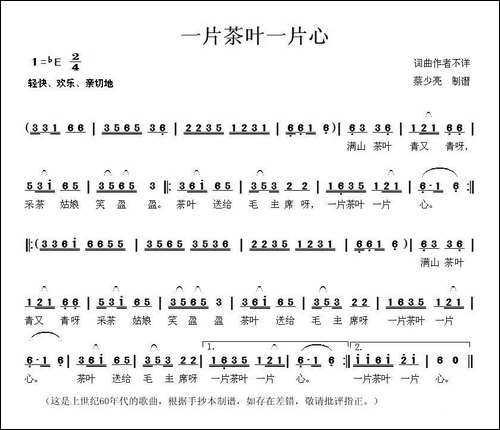 一片茶叶一片心
1=♭E 2/4
词曲作者不详
轻快、欢乐、亲切地
蔡少亮 制谱
(331 66 | 3565 36 | 2235 1231 | 6616 6) | 63 36 | 121 66 |
满山 茶叶 青又 青呀,
53i 65 | 3565 3 |: 36i 65 | 353 22 | 1635 121 | 6·1 6 :|
采茶 姑娘 笑 盈 盈。 茶叶 送给 毛 主 席 呀, 一片茶叶 一片 心。
|:(336i 6655 | 3565 3536 | 2235 1231 | 661 6) | 63 36 |
满山 茶叶
121 66 | 53i 65 | 3565 3 | 36i 65 | 353 22 | 1635 121 |
青又 青呀 采茶 姑娘 笑 盈 盈 茶叶 送给 毛 主 席呀 一片茶叶 一片
6·1 6 | 36i 65 | 353 22 | 1. 1635 121 | 6·1 6 :| 2. ii6i 2i | 60 0 |
心。 茶叶 送给 毛 主 席呀 一片茶叶 一片 心。 一片茶叶 一片 心。
(这是上世纪60年代的歌曲，根据手抄本制谱，如存在差错，敬请批评指正。)